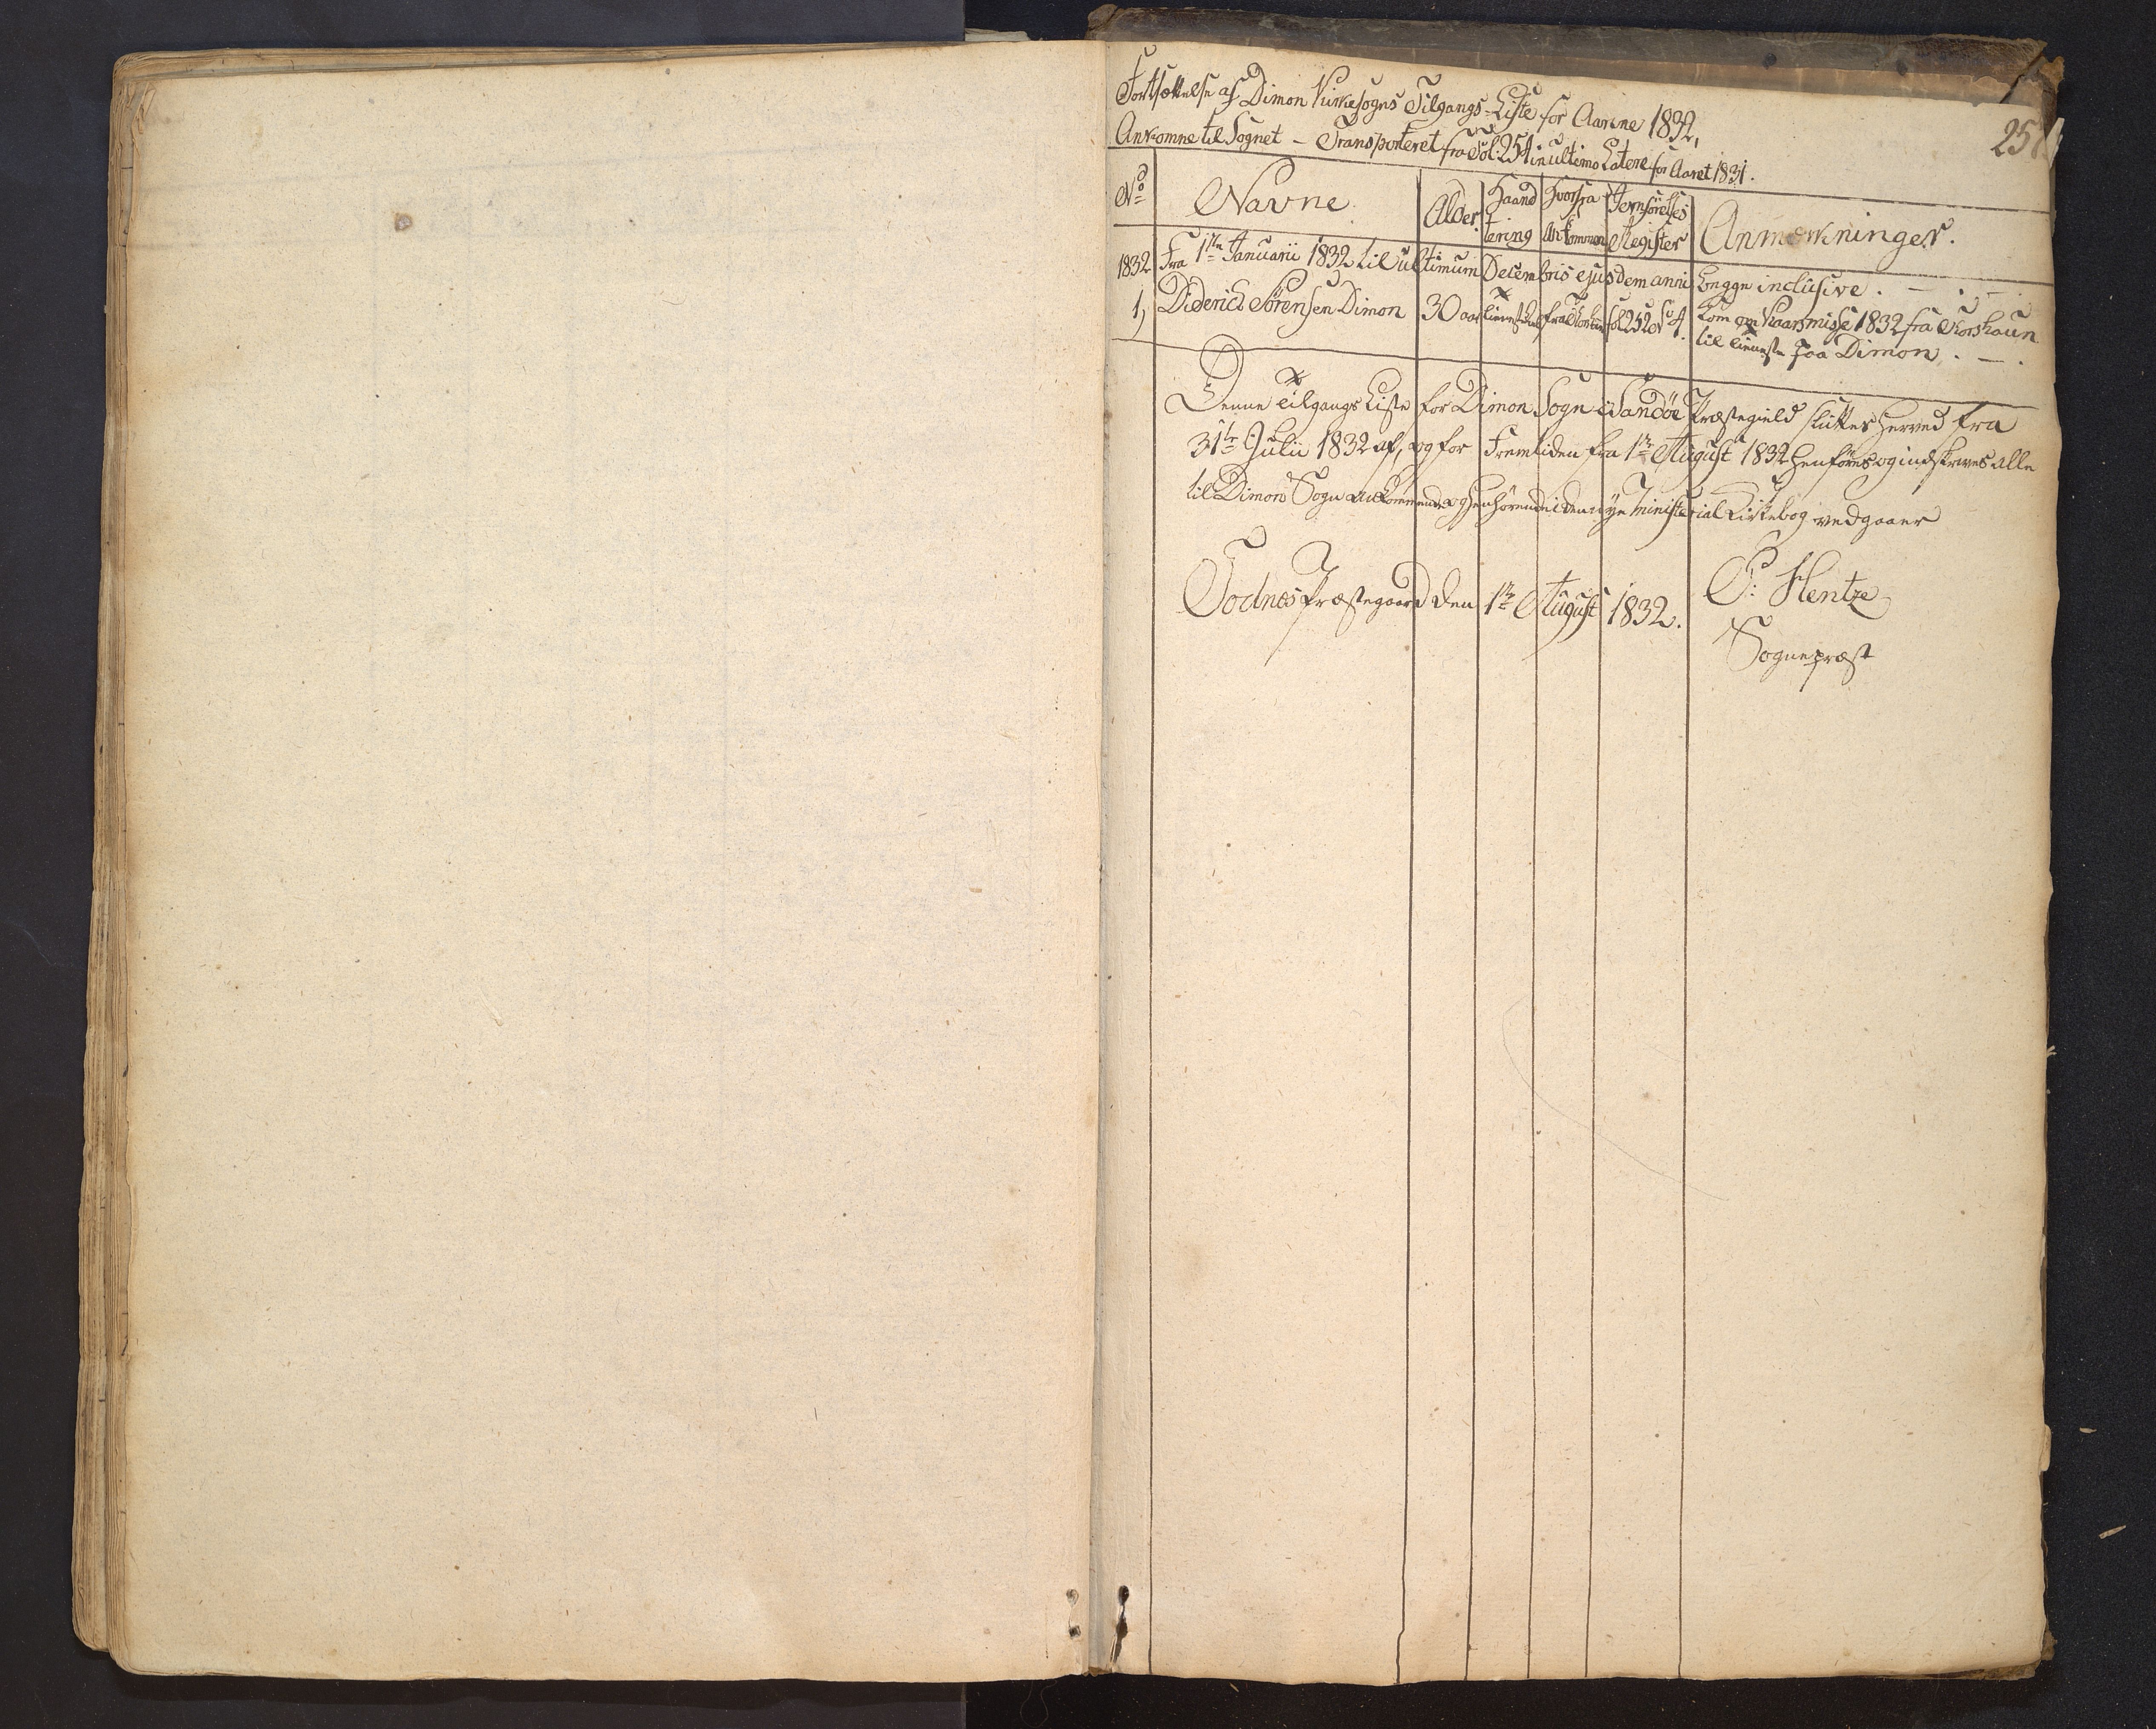 257
Fortsættelse af Dimon Kirkesogns Tilgangs-Liste for Aarene 1832,
Ankomne til Sognet – Transporteret fra Fol: 254 in ultimo Latere for Aaret 1831.
No Navne Alder. Haand tering Hvorfra Ankommen Jevnførelses Register Anmærkninger.
1832 Fra 1ste Januarii 1832 til ultimum Decembris ejusdem anni begge inclusive . — . — .
1, Diderich Sørensen Dimon 30 aar fra fol 252 Kom om Kaarsmisse 1832 fra Thorshaun
til tieneste paa Dimon . — .
Denne Tilgangs Liste for Dimon Sogn i Sandøe Præstegield sluttes herved fra
31te Julii 1832 af, og for Fremtiden fra 1te August 1832 henføres og indskrives alle
til Dimons Sogn ankommende og henhørende i den nye Ministerial Kirkebog vedgaaer
Todnes Præstegaard den 1te August 1832. P: Hentze
Sognepræst